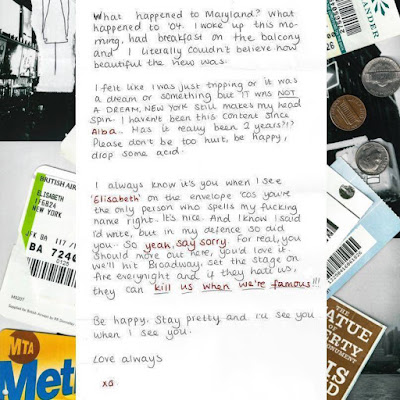 What happened to Maryland? What
happened to '04. I woke up this mo-
rning, had breakfast on the balcony
and I literally couldn't believe how
beautiful the new was.
I felt like I was just tripping or it was
a dream or something but IT WAS NOT
A DREAM, NEW YORK still makes my head
spin. I haven't been this content since
Alba. Has it really been 2 years?!?
Please don't be too hurt, be happy,
drop some acid.
I always know it's you when I see
'Elisabeth' on the envelope 'cos you're
the only person who spells my fucking
name right. It's nice. And I know I said
I'd write, but in my defence so did
you.. So yeah, say sorry. For real, you
should move out here, you'd love it.
We'll hit Broadway, set the stage on
fire everynight and if they hate us,
they can kill us when we're famous!!!
Be happy. Stay pretty and I'll see you
when I see you.
Love always
XO
BRITISH AIR
ELISABETH
1F6824
NEW YORK
JFK BA 117
BA 7240
MTA
Met
ANDER
STATUE
OF
LIBERTY
MONUMENT
IS
ND